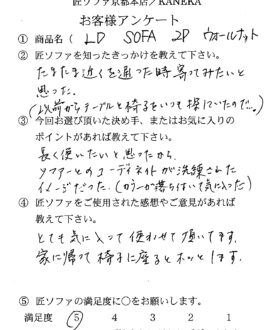 匠ソファ京都本店/KANEKA
お客様アンケート
① 商品名 ( LD SOFA 2P ウォールナット
② 匠ソファを知ったきっかけを教えて下さい。
たまたま近くを通った時 寄ってみたいと
思った。
(以前からテーブルと椅子をいつも探していたので…)
③ 今回お選び頂いた決め手、またはお気に入りの
ポイントがあれば教えて下さい。
長く使いたいと思ったから。
ソファーとのコーディネイトが洗練された
イメージだった。(カラーが落ち付いて気に入った)
④ 匠ソファをご使用された感想やご意見があれば
教えて下さい。
とても気に入って使わせて頂いてます。
家に帰って椅子に座るとホッとします。
⑤ 匠ソファの満足度に○をお願いします。
満足度 5 4 3 2 1